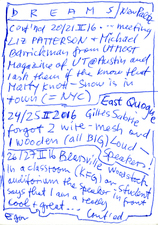 DREAMS New Page
Cont'nd 20/21 II 16 ... meeting
LIZ PATTERSON + Michael
Barrickman from UTMOST
Magazine of UT@Austin and
I ask them if the know that
Marty Knott-Snow is in
town (= NYC) East Quogue
24/25 II 2016 Gilles Sabrie I
forgot 2 wire-mesh and
1 wooden (all BIG) Loud
Speakers!
26/27 II 16
In a classroom (KFG) an
auditorium the speaker in front
says that I am a really
cool + great...
Egon